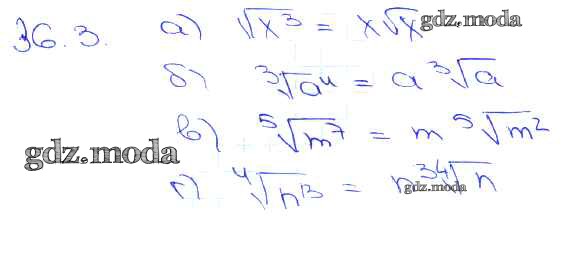 36.3. а) √x³ = x√x gdz.moda
б) ³√a⁴ = a ³√a
в) ⁵√m⁷ = m ⁵√m²
gdz.moda
г) ⁴√n¹³ = n³ ⁴√n
gdz.moda